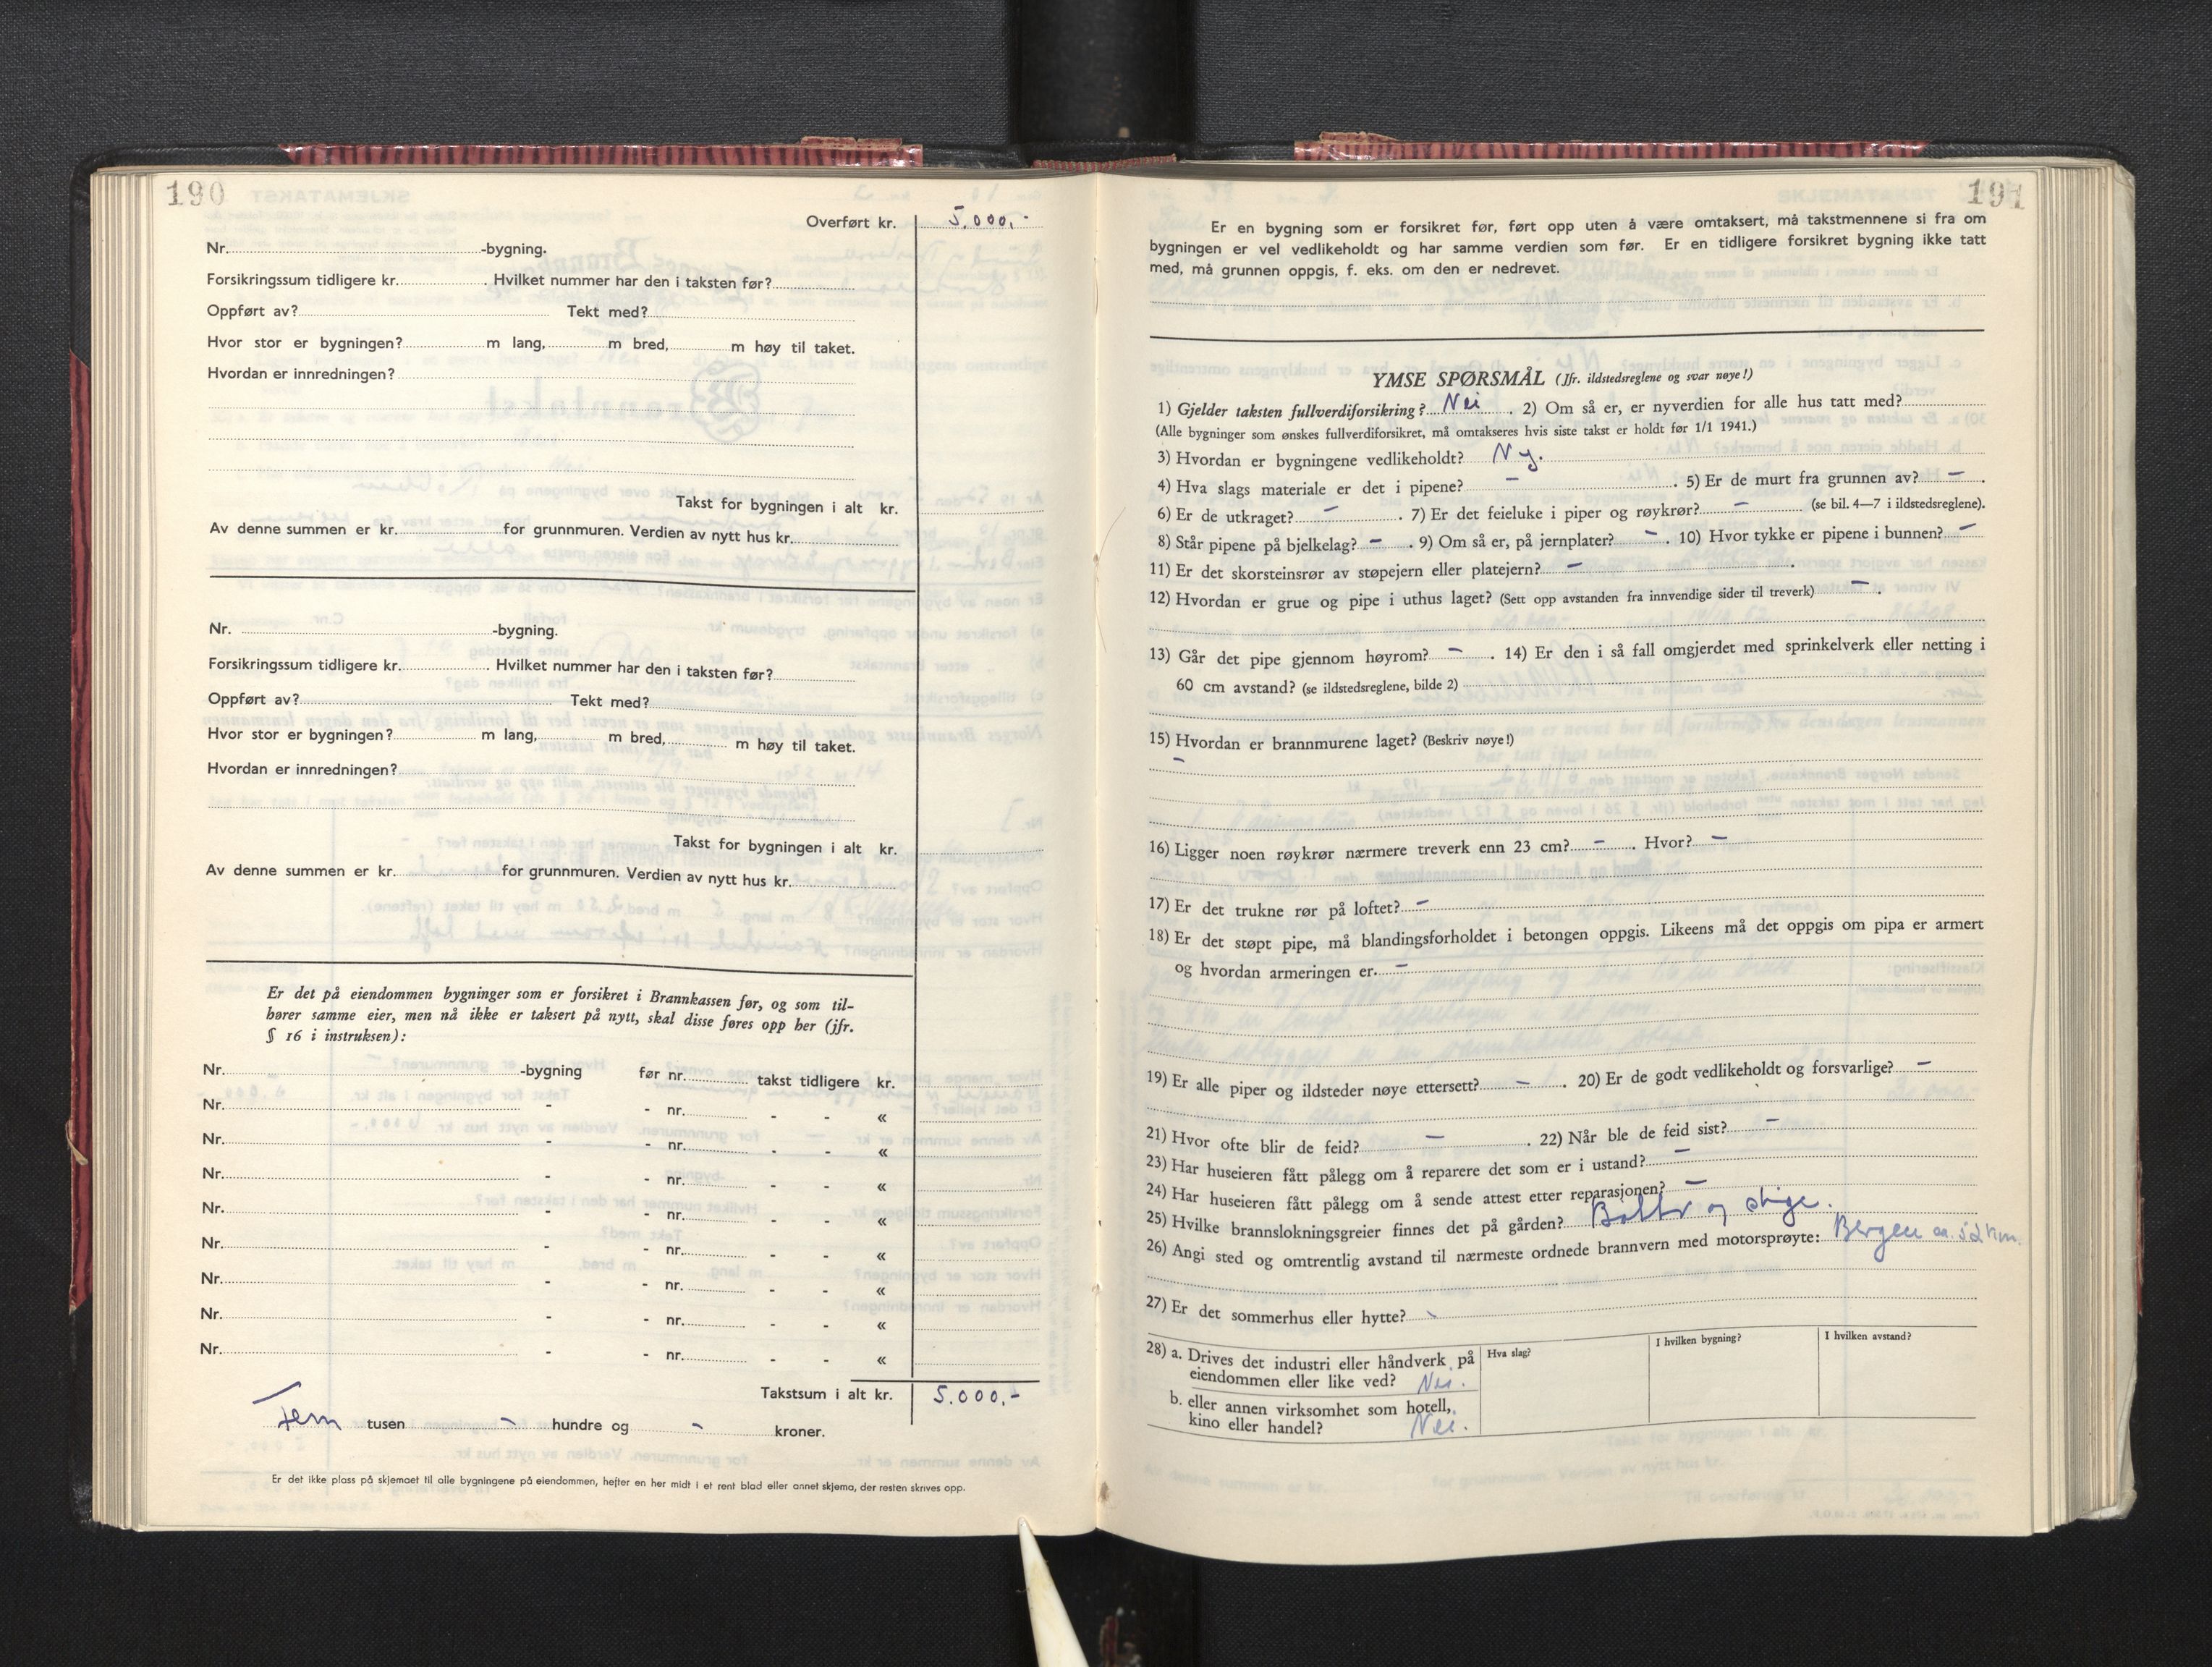 190
Overført kr. 5.000,-
Nr. -bygning.
Forsikringssum tidligere kr. . Hvilket nummer har den i taksten før?
Oppført av? Tekt med?
Hvor stor er bygningen? m lang, m bred, m høy til taket.
Hvordan er innredningen?
Takst for bygningen i alt kr.
Av denne summen er kr. for grunnmuren. Verdien av nytt hus kr.
Nr. -bygning.
Forsikringssum tidligere kr. . Hvilket nummer har den i taksten før?
Oppført av? Tekt med?
Hvor stor er bygningen? m lang, m bred, m høy til taket.
Hvordan er innredningen?
Takst for bygningen i alt kr.
Av denne summen er kr. for grunnmuren. Verdien av nytt hus kr.
Er det på eiendommen bygninger som er forsikret i Brannkassen før, og som til-
hører samme eier, men nå ikke er taksert på nytt, skal disse føres opp her (jfr.
§ 16 i instruksen):
Nr. -bygning før nr. takst tidligere kr.
Nr. - - nr. - - «
Nr. - - nr. - - «
Nr. - - nr. - - «
Nr. - - nr. - - «
Nr. - - nr. - - «
Nr. - - nr. - - «
Nr. - - nr. - - «
Nr. - - nr. - - «
Takstsum i alt kr. 5.000,-
Fem tusen - hundre og - kroner.
Er det ikke plass på skjemaet til alle bygningene på eiendommen, hefter en her midt i et rent blad eller annet skjema, der resten skrives opp.
191
Er en bygning som er forsikret før, ført opp uten å være omtaksert, må takstmennene si fra om
bygningen er vel vedlikeholdt og har samme verdien som før. Er en tidligere forsikret bygning ikke tatt
med, må grunnen oppgis, f. eks. om den er nedrevet.
YMSE SPØRSMÅL (Jfr. ildstedsreglene og svar nøye!)
1) Gjelder taksten fullverdiforsikring? Nei . 2) Om så er, er nyverdien for alle hus tatt med?
(Alle bygninger som ønskes fullverdiforsikret, må omtakseres hvis siste takst er holdt før 1/1 1941.)
3) Hvordan er bygningene vedlikeholdt? Ny.
4) Hva slags materiale er det i pipene? - . 5) Er de murt fra grunnen av? - .
6) Er de utkraget? - . 7) Er det feieluke i piper og røykrør? - (se bil. 4—7 i ildstedsreglene).
8) Står pipene på bjelkelag? - . 9) Om så er, på jernplater? - . 10) Hvor tykke er pipene i bunnen? -
11) Er det skorsteinsrør av støpejern eller platejern? - .
12) Hvordan er grue og pipe i uthus laget? (Sett opp avstanden fra innvendige sider til treverk) - .
13) Går det pipe gjennom høyrom? - . 14) Er den i så fall omgjerdet med sprinkelverk eller netting i
60 cm avstand? (se ildstedsreglene, bilde 2)
15) Hvordan er brannmurene laget? (Beskriv nøye!)
-
16) Ligger noen røykrør nærmere treverk enn 23 cm? - . Hvor? -
17) Er det trukne rør på loftet? -
18) Er det støpt pipe, må blandingsforholdet i betongen oppgis. Likeens må det oppgis om pipa er armert
og hvordan armeringen er. -
19) Er alle piper og ildsteder nøye ettersett? - . 20) Er de godt vedlikeholdt og forsvarlige? -
21) Hvor ofte blir de feid? - . 22) Når ble de feid sist? -
23) Har huseieren fått pålegg om å reparere det som er i ustand? -
24) Har huseieren fått pålegg om å sende attest etter reparasjonen? -
25) Hvilke brannslokningsgreier finnes det på gården? Bøtter og stige.
26) Angi sted og omtrentlig avstand til nærmeste ordnede brannvern med motorsprøyte: Bergen ca. 52 km.
27) Er det sommerhus eller hytte? -
28) a. Drives det industri eller håndverk på Hva slag? I hvilken bygning? I hvilken avstand?
eiendommen eller like ved? Nei.
b. eller annen virksomhet som hotell,
kino eller handel? Nei.